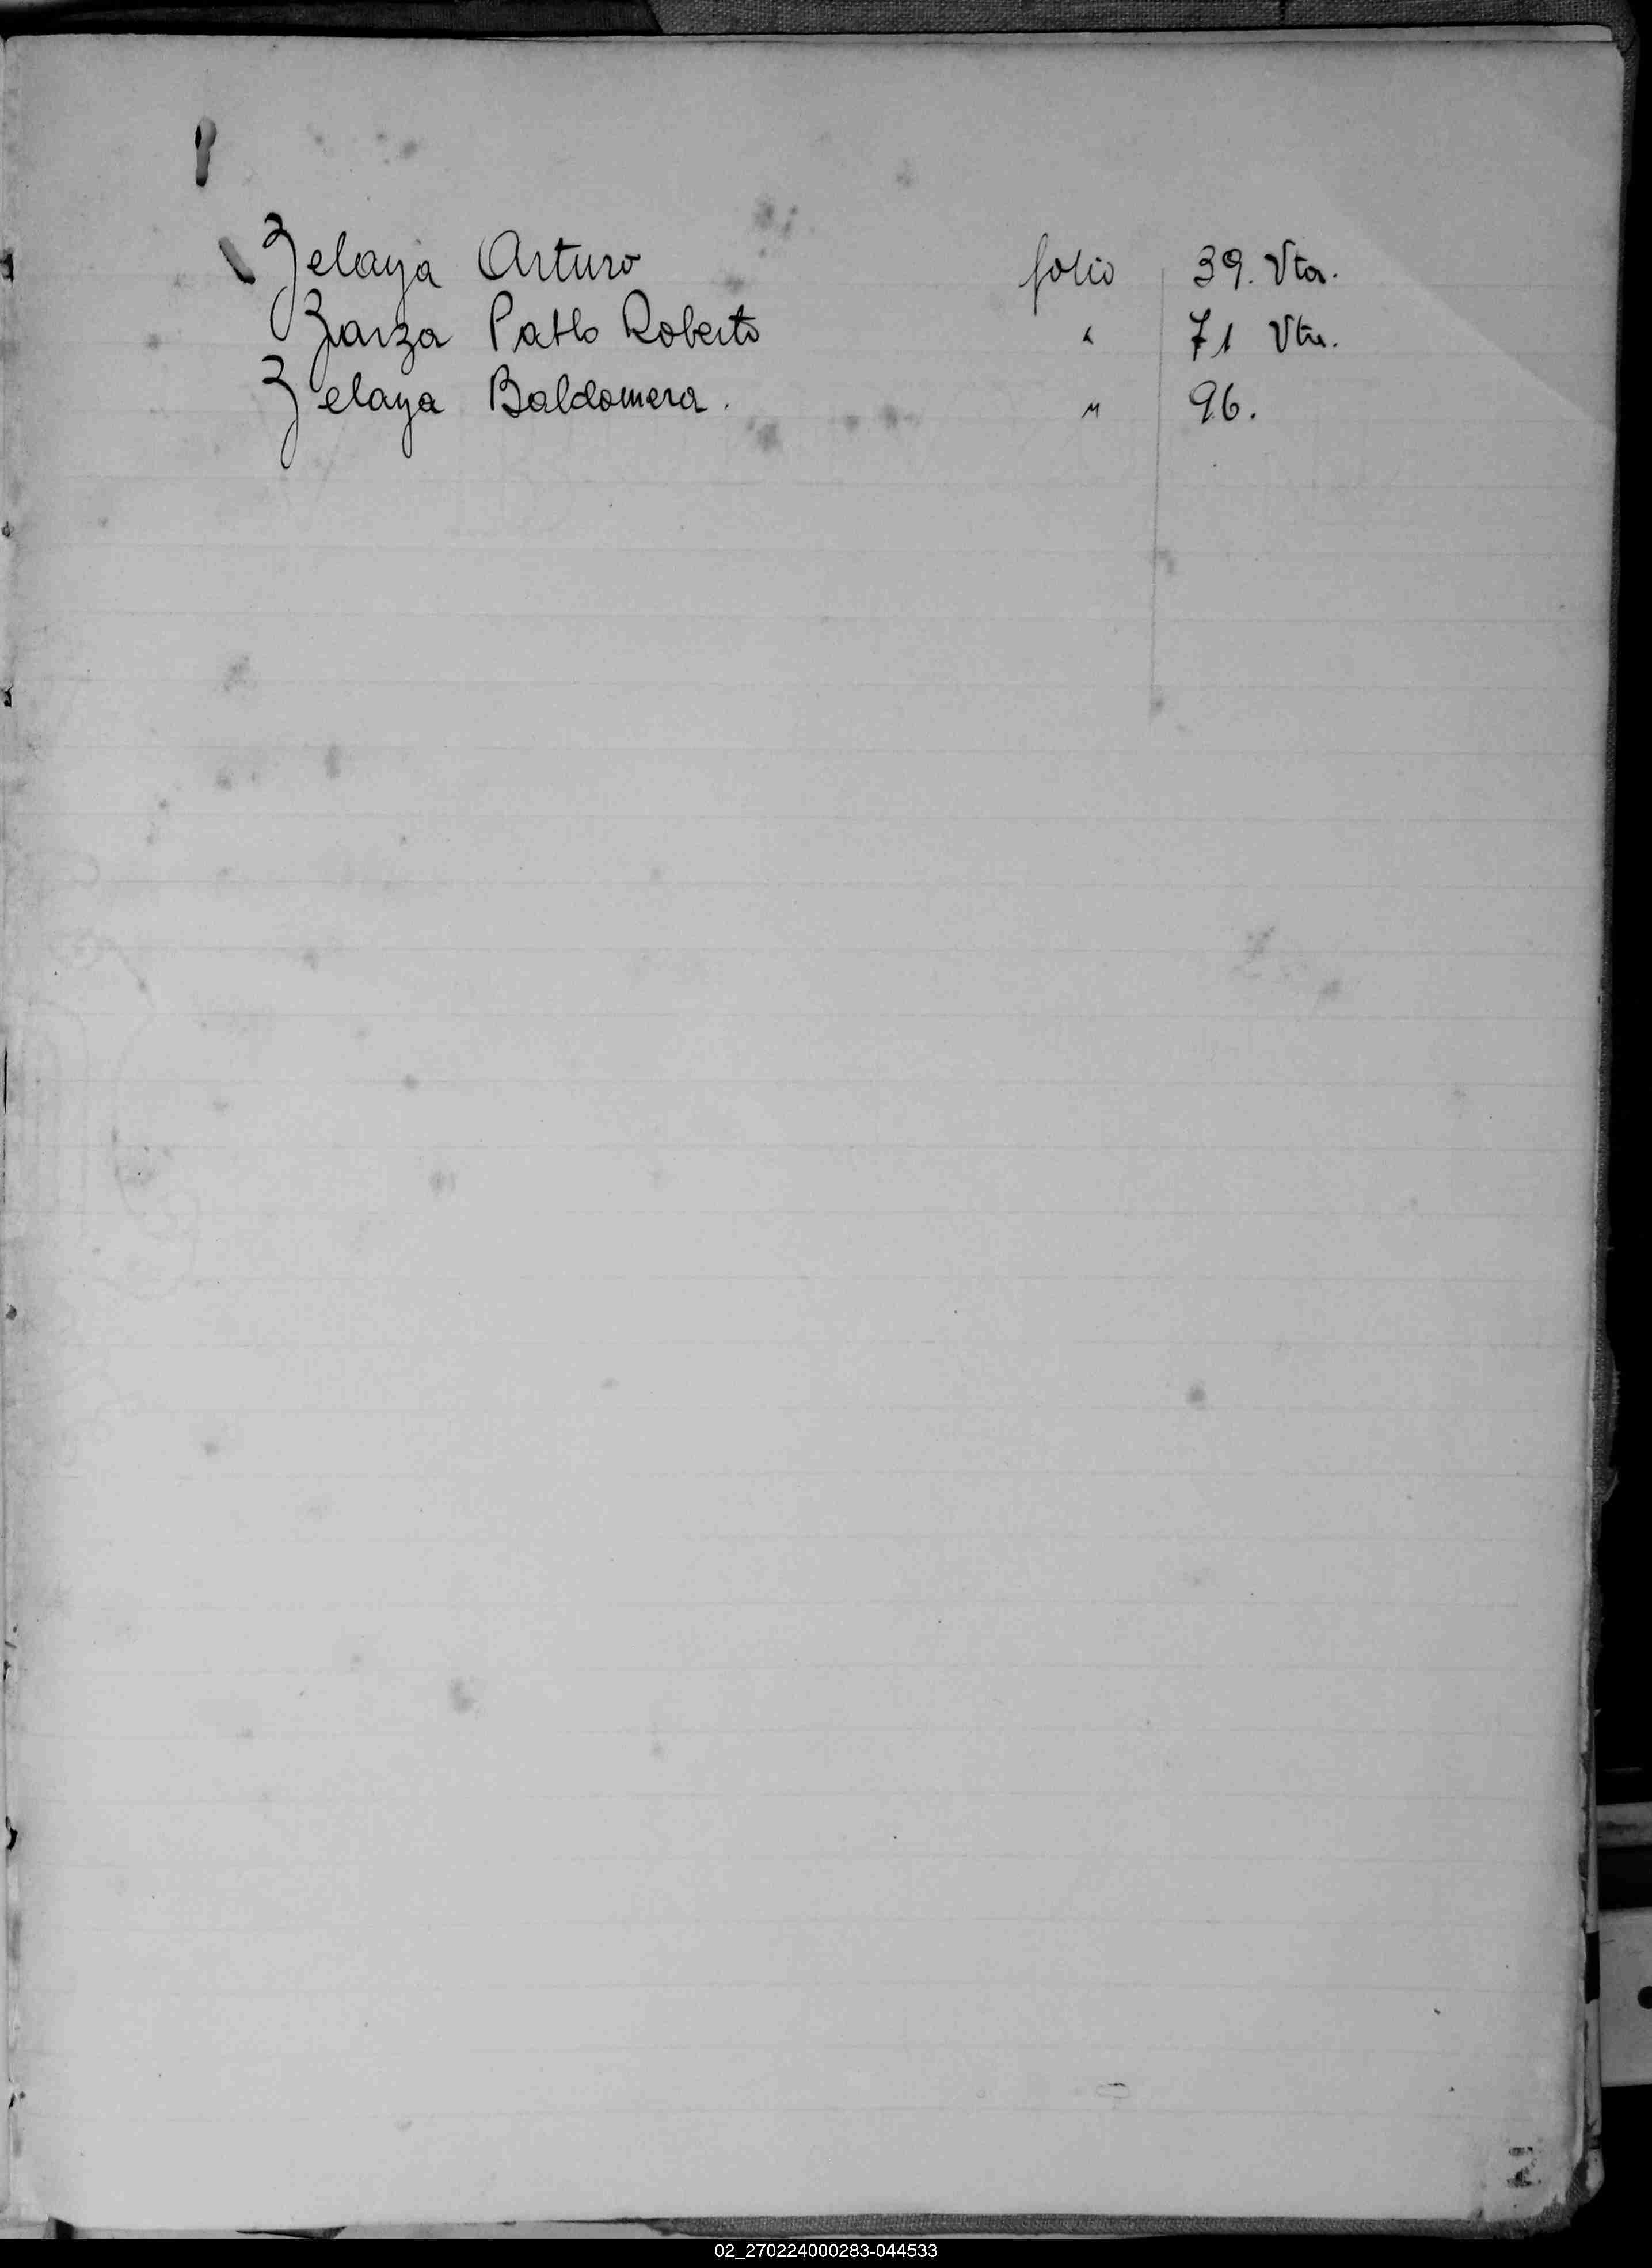 Zelaya Arturo folio 39. Vta.
Zarza Pablo Roberto " 71 Vta.
Zelaya Baldomera. " 96.
Z
02_270224000283-044533